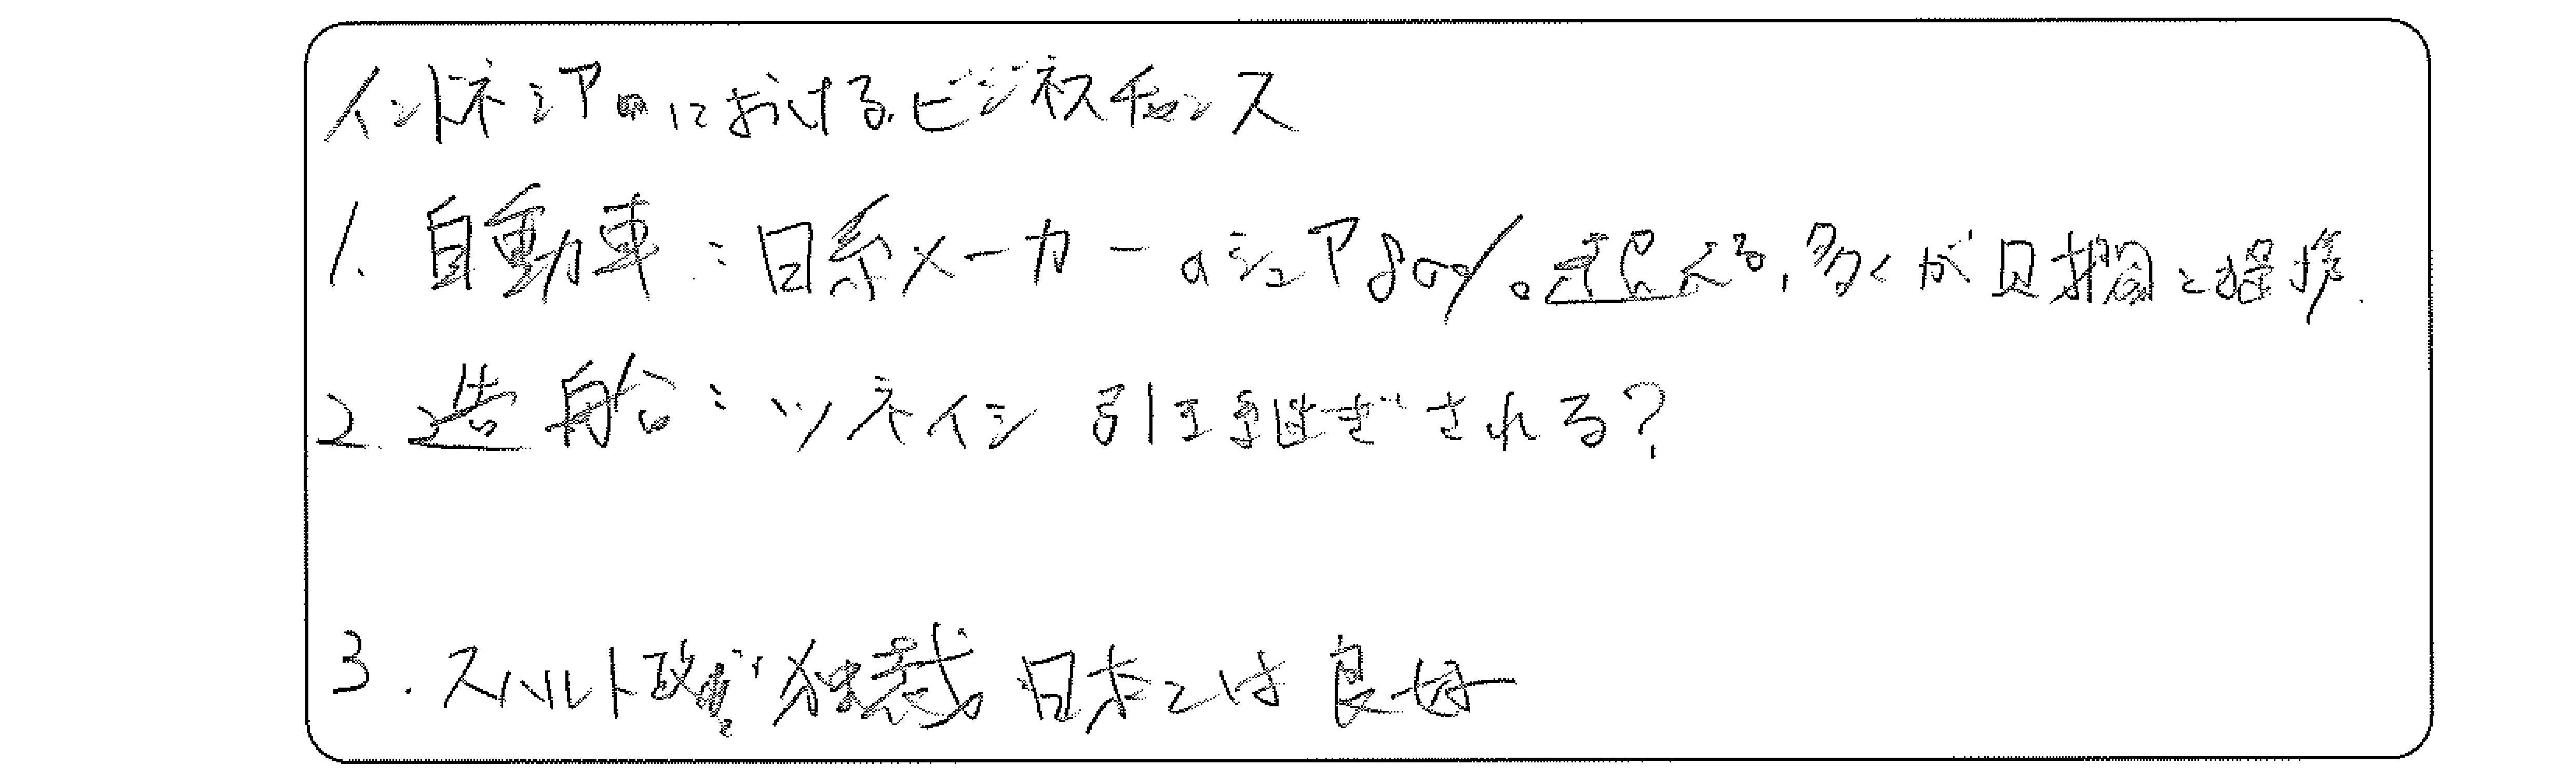 インドネシアにおけるビジネスチャンス
1. 自動車：日系メーカーのシェア80%。超える，多くが財閥と提携．
2. 造船：ツネイシ 引き継ぎされる？
3. スハルト政 独裁 日本とは良好